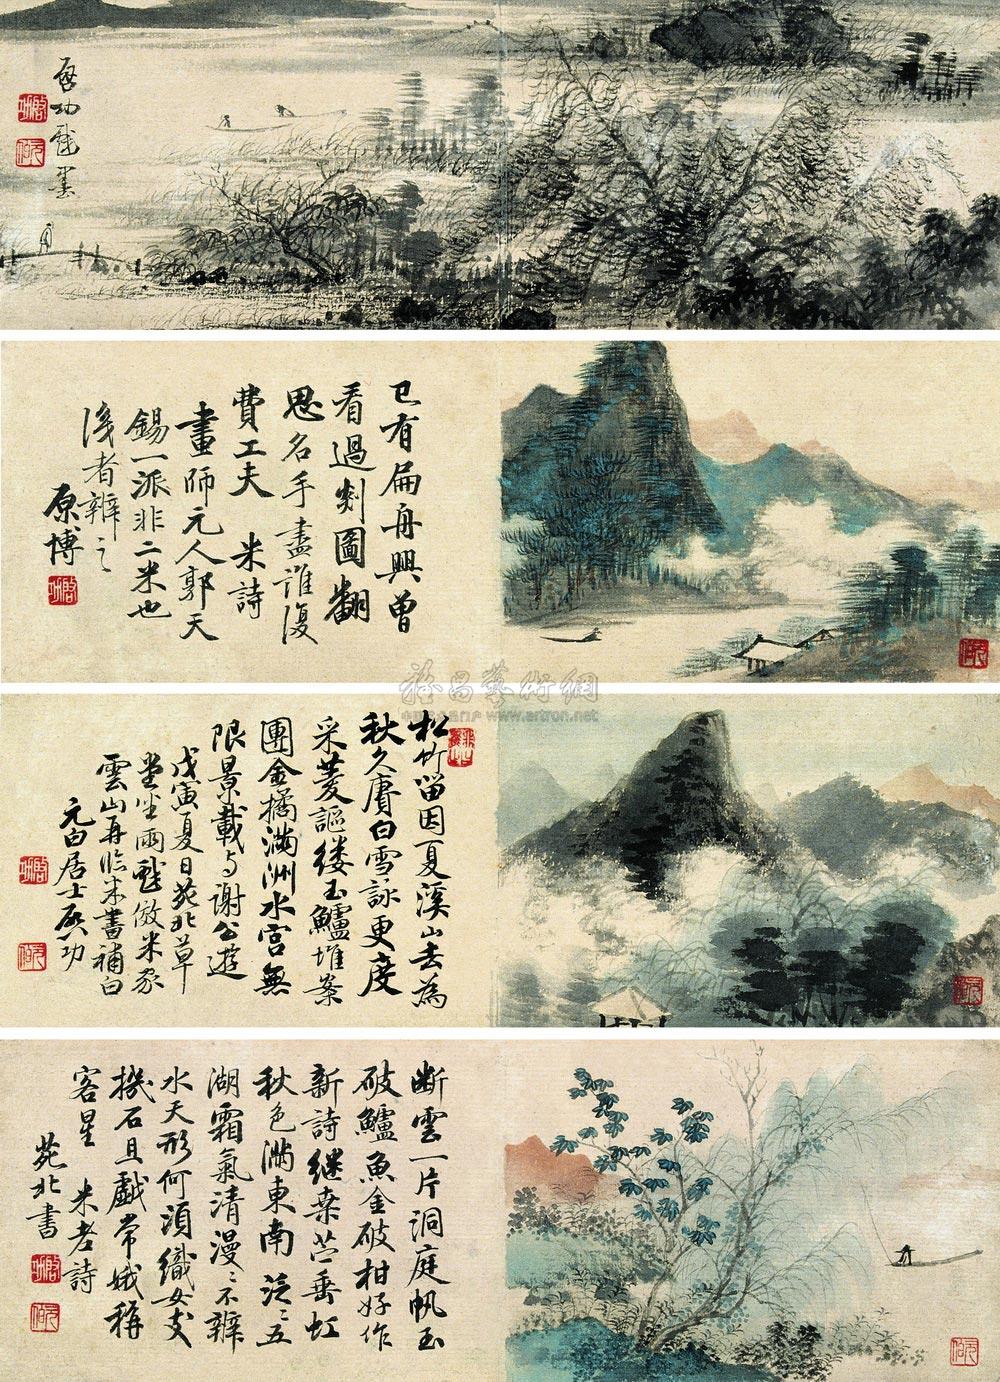 啓功戲墨
啓功
元白
已有扁舟興曾
看過剡圖翻
思名手盡誰復
費工夫 米詩
畫師元人郭天
錫一派非二米也
識者辨之
原博
啓功
元白
雅昌藝術網
www.artron.net
松竹留因夏溪山去為
秋久賡白雪詠更度
采菱謳縷玉鱸堆案
團金橘滿洲水宮無
限景載与謝公遊
戊寅夏日苑北草
堂坐雨戲倣米家
雲山再臨米書補白
元白居士啓功
啓功
元白
元白
斷雲一片洞庭帆玉
破鱸魚金破柑好作
新詩繼桑苎垂虹
秋色滿東南 泛〻五
湖霜氣清漫〻不辨
水天形何須織女支
機石且戲常娥稱
客星 米老詩
苑北書
啓功
元白
元白